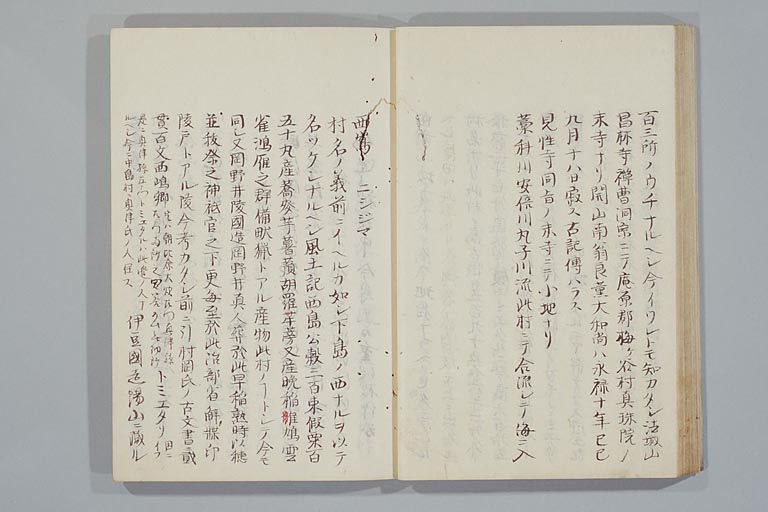 百三所ノウチナルヘシ今イツレトモ知カタシ法城山
昌林寺禅曹洞宗ニテ庵原郡梅ヶ谷村真珠院ノ
末寺ナリ開山南翁良薫大和尚ハ永禄十年己巳
九月十八日寂ス古記傳ハラス
見性寺同旨ノ末寺ニテ小地ナリ
藁科川安倍川丸子川流此村ニテ合流シテ海ニ入
西島 ニシジマ
村名ノ義前ニイヘルカ如シ下島ノ西ナルヲ以テ
名ツケシナルヘシ風土記西島公穀三百束假粟百
五十丸産蕎麥芋薯蕷胡羅芹蒡又産晩稲雉鳩雲
雀鴻雁之群備畋猟トアル産物此村ノコトシテ今モ
同シ又岡野井陵國造岡野井真人葬於此早稲熟時以穂
並秡祭之神祇官之下更毎至於此治部省解牒印
陵戸トアル陵今考カタシ前ニ引村岡氏ノ古文書ニ貳
貫百文西嶋郷 トミエタリ
是ニ奥津 トミエタルハ此邊ノ人 伊豆國 陽山ニ蔵ル
ルヘシ今ニ中島村ニ奥津氏ノ人住ス